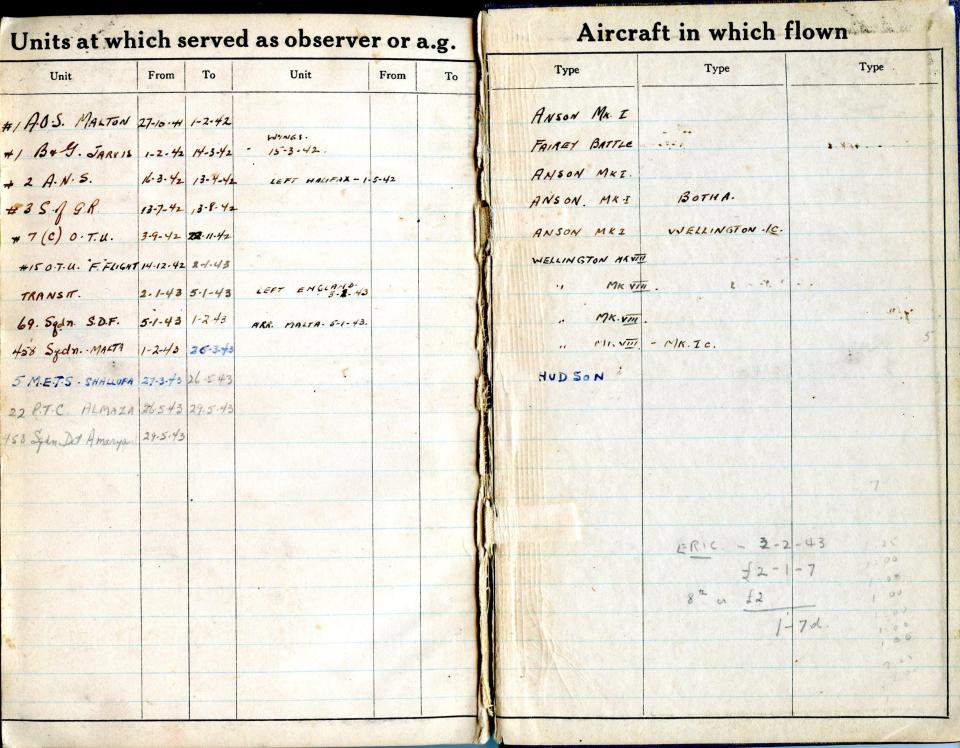 Units at which served as observer or a.g.
Unit From To Unit From To
#1 A.O.S. MALTON 27-10-41 1-2-42
WINGS.
#1 B&G. JARVIS 1-2-42 14-3-42 15-3-42.
#2 A.N.S. 16-3-42 13-4-42 LEFT HALIFAX - 1-5-42
#3 S of G.R. 13-7-42 13-8-42
#7 (C) O.T.U. 3-9-42 11-42
#15 O.T.U. "F" FLIGHT 14-12-42 2-1-43
TRANSIT. 2-1-43 5-1-43 LEFT ENGLAND. 3-1-43
69. Sqdn. S.D.F. 5-1-43 1-2-43 ARR. MALTA. 5-1-43.
458 Sqdn. - MALTA 1-2-43 26-3-43
5 M.E.T.S - SHALLUFA 27-3-43 26-5-43
22 P.T.C. ALMAZA 26-5-43 29.5.43
458 Sqdn Det Amerya 29.5.43
Aircraft in which flown
Type Type Type
ANSON MK. I
FAIREY BATTLE
ANSON MK I.
ANSON. MK-I BOTHA.
ANSON MK I WELLINGTON .IC.
WELLINGTON MK VIII
" MK VIII.
" MK.VIII.
" MK.VIII. - MK.Ic.
HUDSON
ERIC - 2-2-43
£2-1-7
8th £2
1-7d.